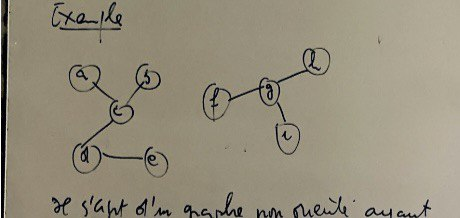 Example
a b
h
f g
c
i
d e
Il s'agit d'un graphe non orienté ayant